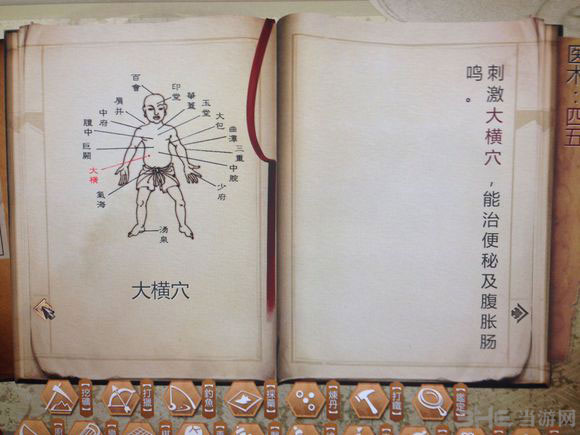 百會
印堂
華蓋
玉堂
大包
曲澤
三重
中脘
少府
肩井
中府
膻中
巨闕
大橫
氣海
湧泉
大横穴
刺激大横穴，能治便秘及腹胀肠
鸣。
医术：四五
【打獵】
【釣魚】
【採藥】
【煉丹】
【打鐵】
当游网